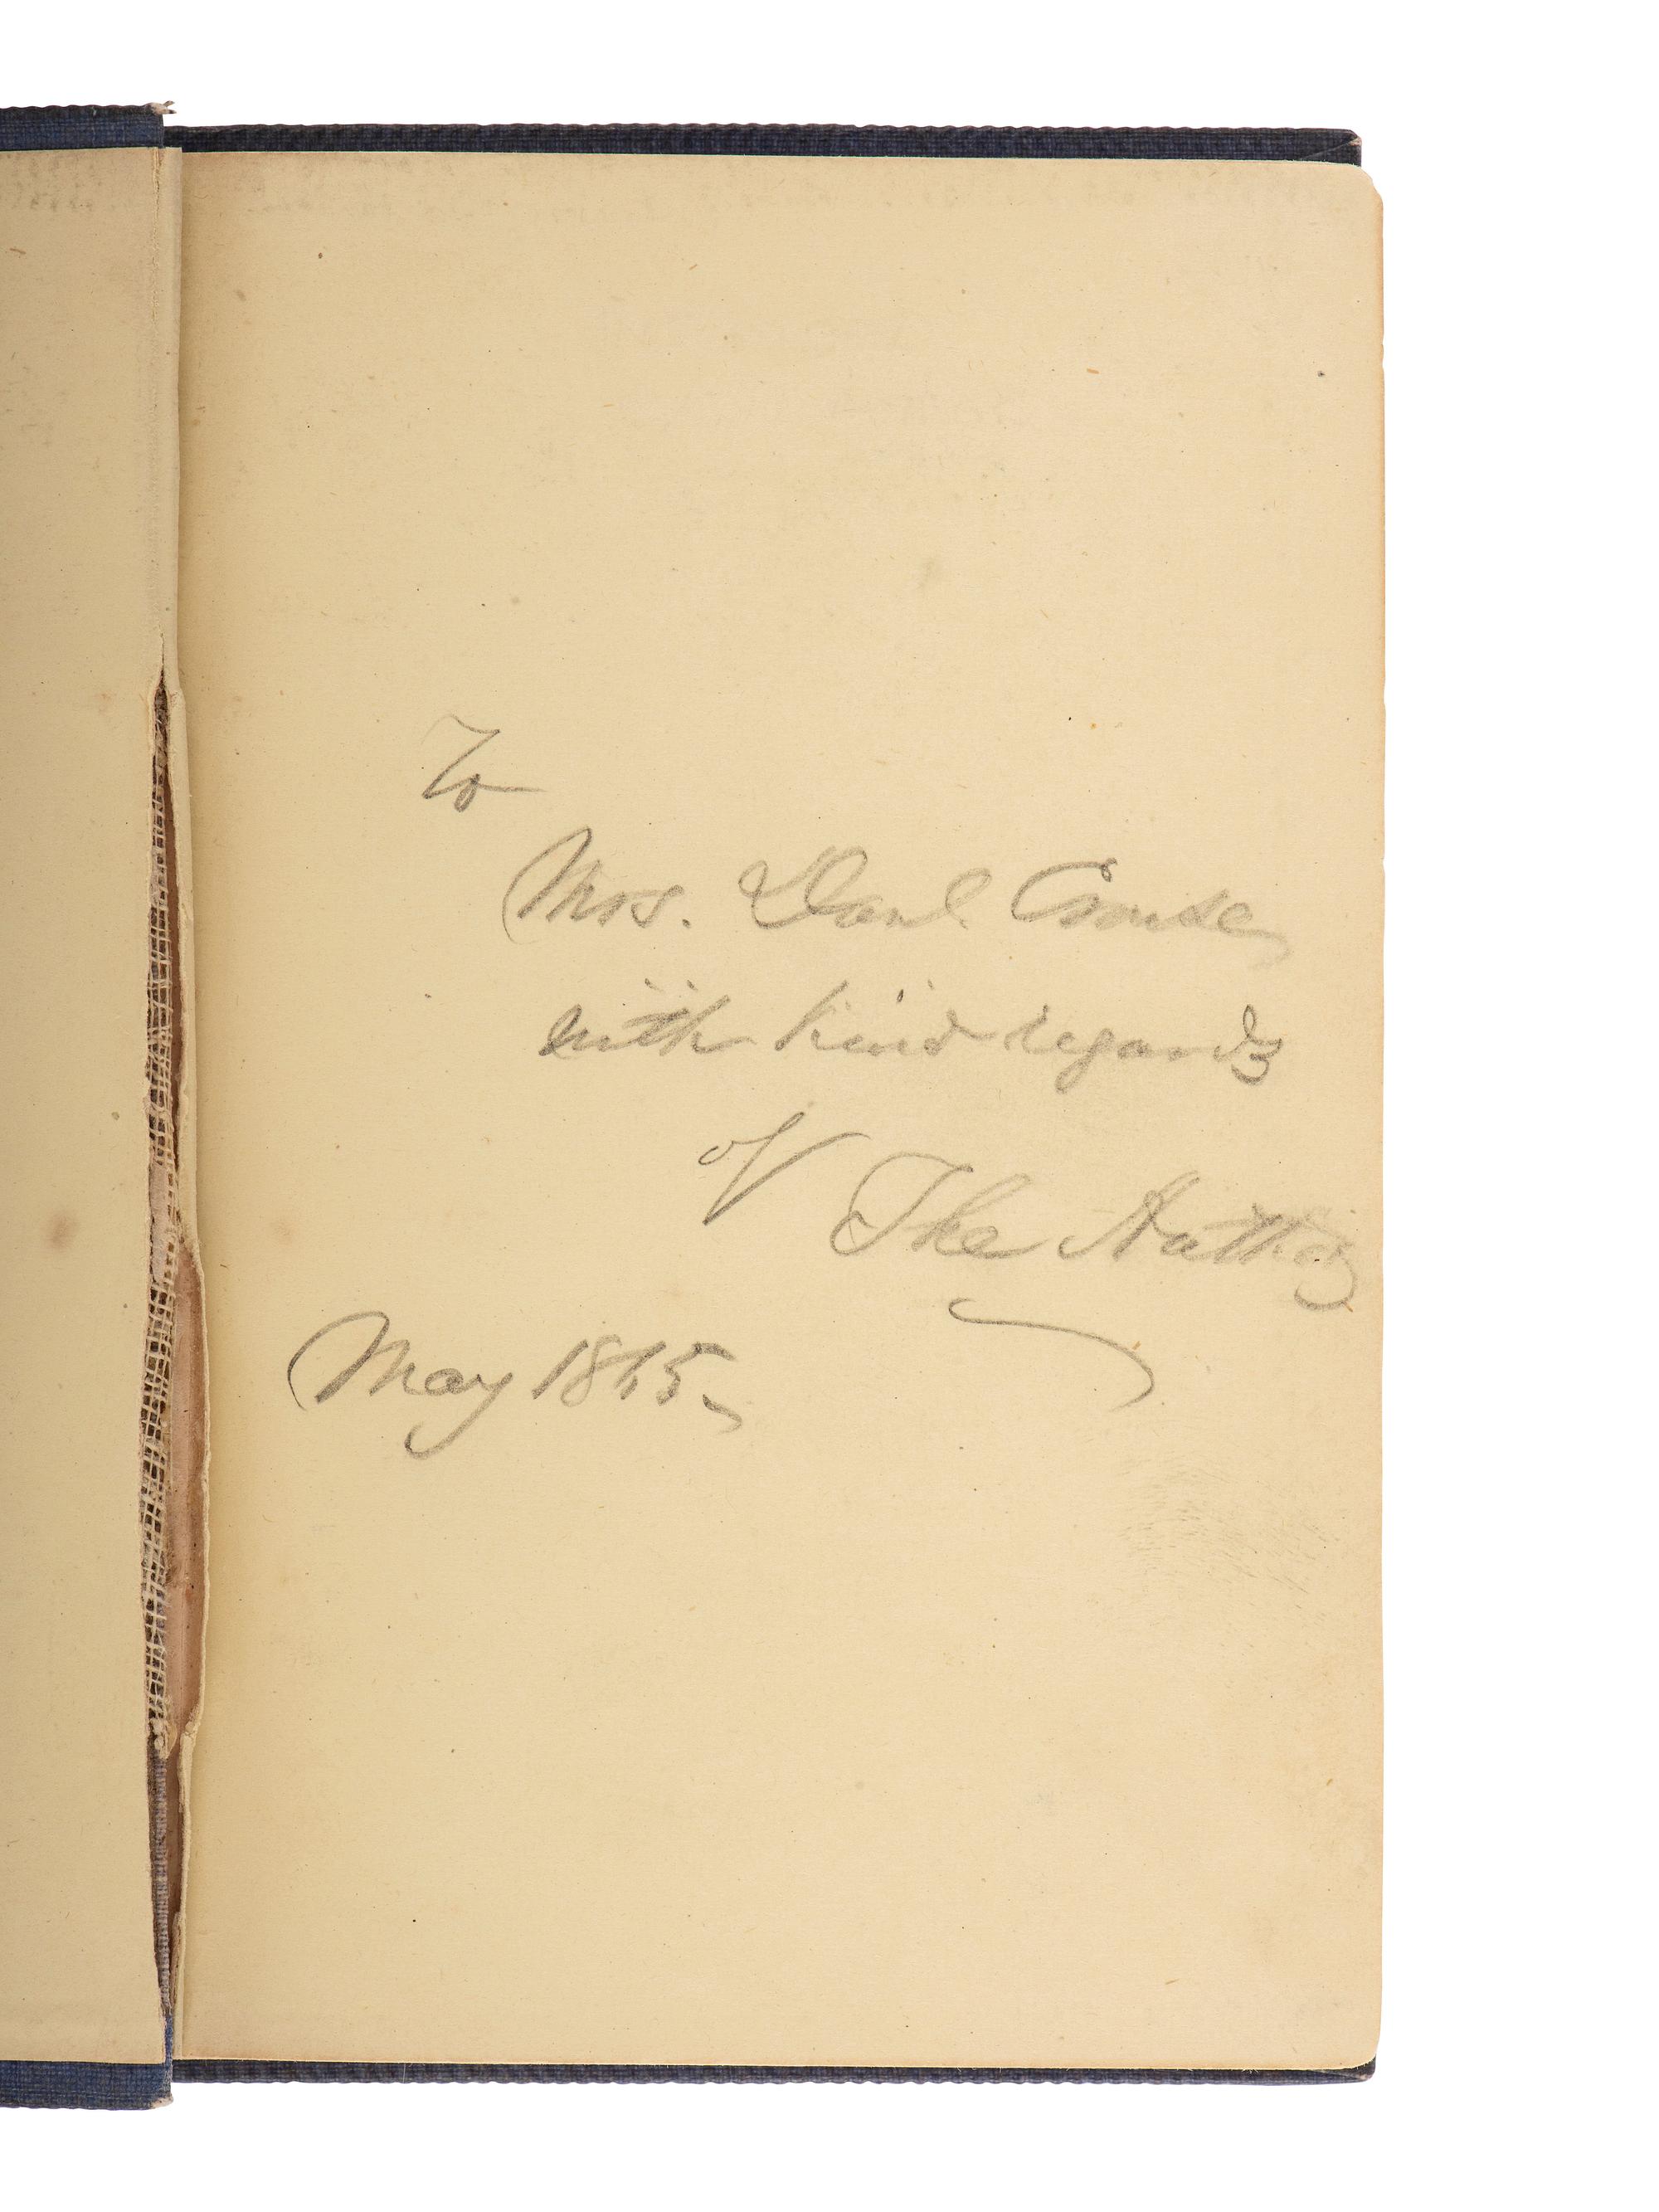 To
Mrs. Danl Crouse
with kind regards
of The Author
May